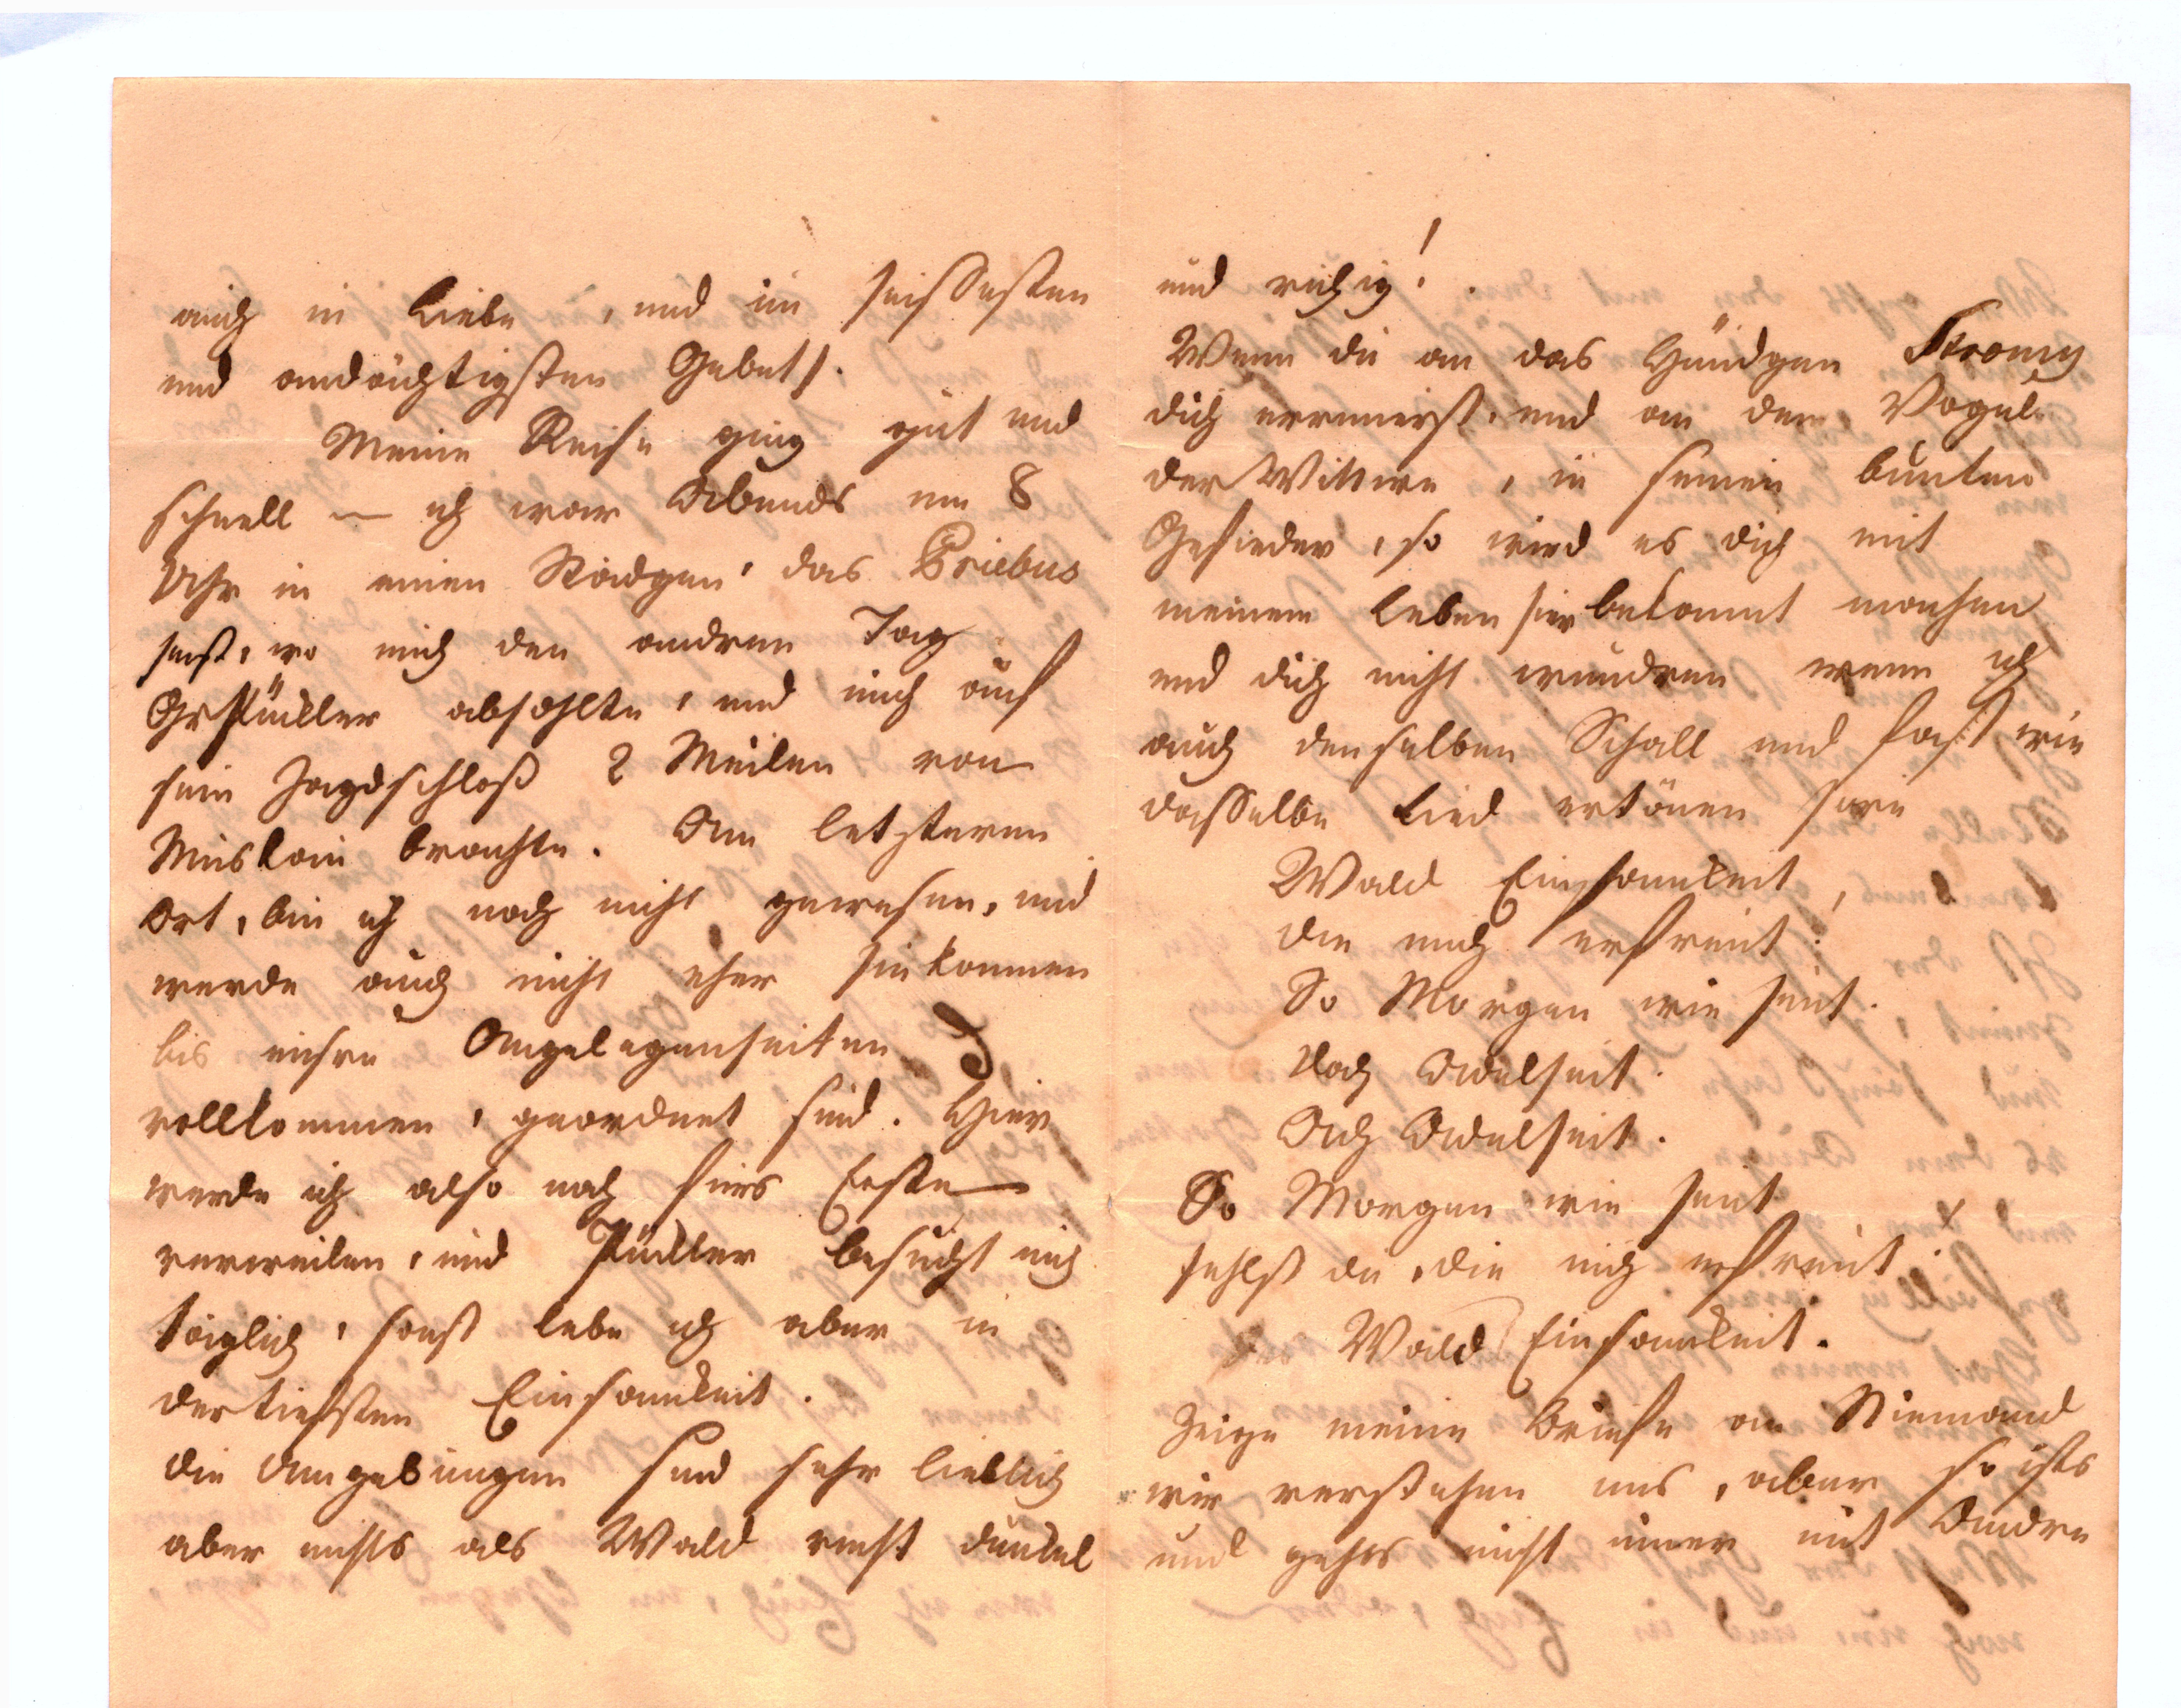 auch in Liebe, und im heissesten
und andächtigsten Gebet.
Meine Reise ging gut und
schnell — ich war Abends um 8
Uhr in einen Städgen, das Priebus
heist, wo mich den andren Tag
Gr Pückler abhohlte, und mich auf
sein Jagdschloß 2 Meilen von
Muskau brachte. Am letzteren
Ort, bin ich noch nicht gewesen, und
werde auch nicht eher hinkommen
bis unsre Angelegenheiten
vollkommen, geordnet sind. Hier
werde ich also noch fürs Erste
verweilen, und Pückler besucht mich
täglich, sonst lebe ich aber in
der tiefsten Einsamkeit.
die Umgebungen sind sehr lieblich
aber nichts als Wald recht dunkel
und ruhig!
Wenn du an das Hündgen Stromy
dich errinnerst, und an den Vogel
der Wittwe, in seinen bunten
Gefieder, so wird es dich mit
meinem Leben hier bekannt machen
und dich nicht wundren wenn ich
auch denselben Schall und fast wie
dasselbe Lied ertönen
Wald Einsamkeit,
die mich erfreut!
So Morgen wie heut.
Doch Adelheit.
Ach Adelheit.
So Morgen wie heut
fehlst du, die mich erfreut!
Wald Einsamkeit.
Zeige meine Briefe an Niemand
wir verstehen uns, aber so ists
und gehts nicht immer mit Andre